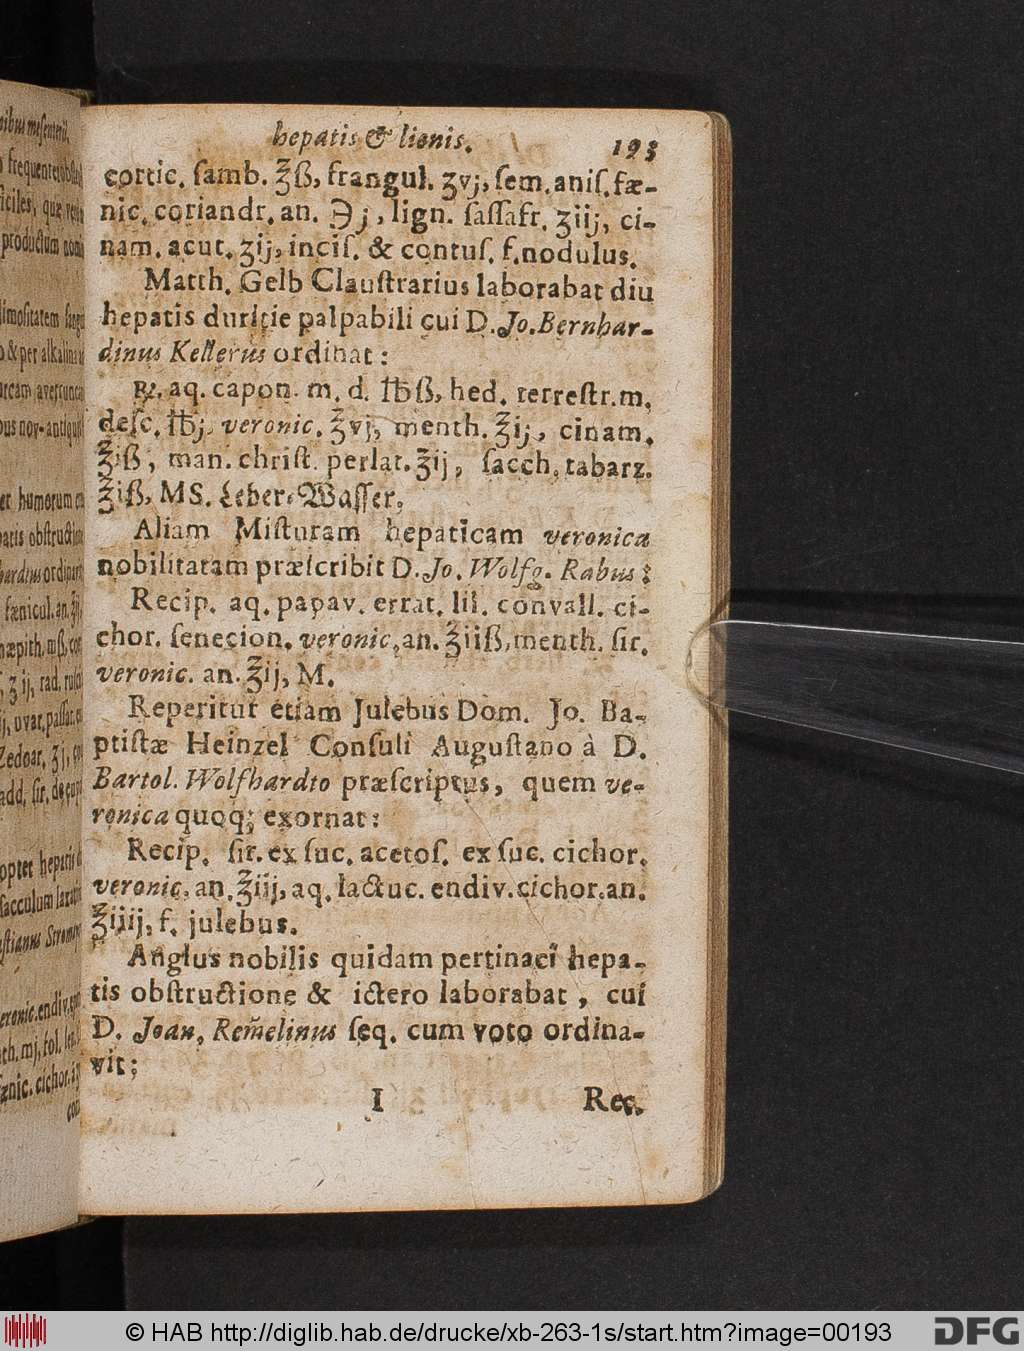 hepatis & lienis. 193
cortic. ſamb. ℥ß, frangul. ʒvj, ſem. aniſ. fæ-
nic. coriandr. an. ℈j, lign. ſaſſafr. ʒiij, ci-
nam. acut. ʒij, inciſ. & contuſ. f. nodulus.
Matth. Gelb Clauſtrarius laborabat diu
hepatis duritie palpabili cui D. Jo. Bernhar-
dinus Kellerus ordinat:
℞. aq. capon. m. d. ℔ß, hed. terreſtr. m.
deſc. ℔j, veronic. ℥vj, menth. ℥ij, cinam.
℥iß, man. chriſt. perlat. ℥ij, ſacch. tabarz.
℥iß, MS. Leber-Waſſer.
Aliam Miſturam hepaticam veronica
nobilitatam præſcribit D. Jo. Wolfg. Rabus:
Recip. aq. papav. errat. lil. convall. ci-
chor. ſenecion. veronic. an. ℥iiß, menth. ſir.
veronic. an. ℥ij, M.
Reperitur etiam Julebus Dom. Jo. Ba-
ptiſtæ Heinzel Conſuli Auguſtano à D.
Bartol. Wolfhardto præſcriptus, quem ve-
ronica quoq; exornat:
Recip. ſir. ex ſuc. acetoſ. ex ſuc. cichor.
veronic. an. ℥iij, aq. lactuc. endiv. cichor. an.
℥iiij, f. julebus.
Anglus nobilis quidam pertinaci hepa-
tis obſtructione & ictero laborabat, cui
D. Joan. Rem̃elinus ſeq. cum voto ordina-
vit;
I Rec.
© HAB http://diglib.hab.de/drucke/xb-263-1s/start.htm?image=00193
DFG